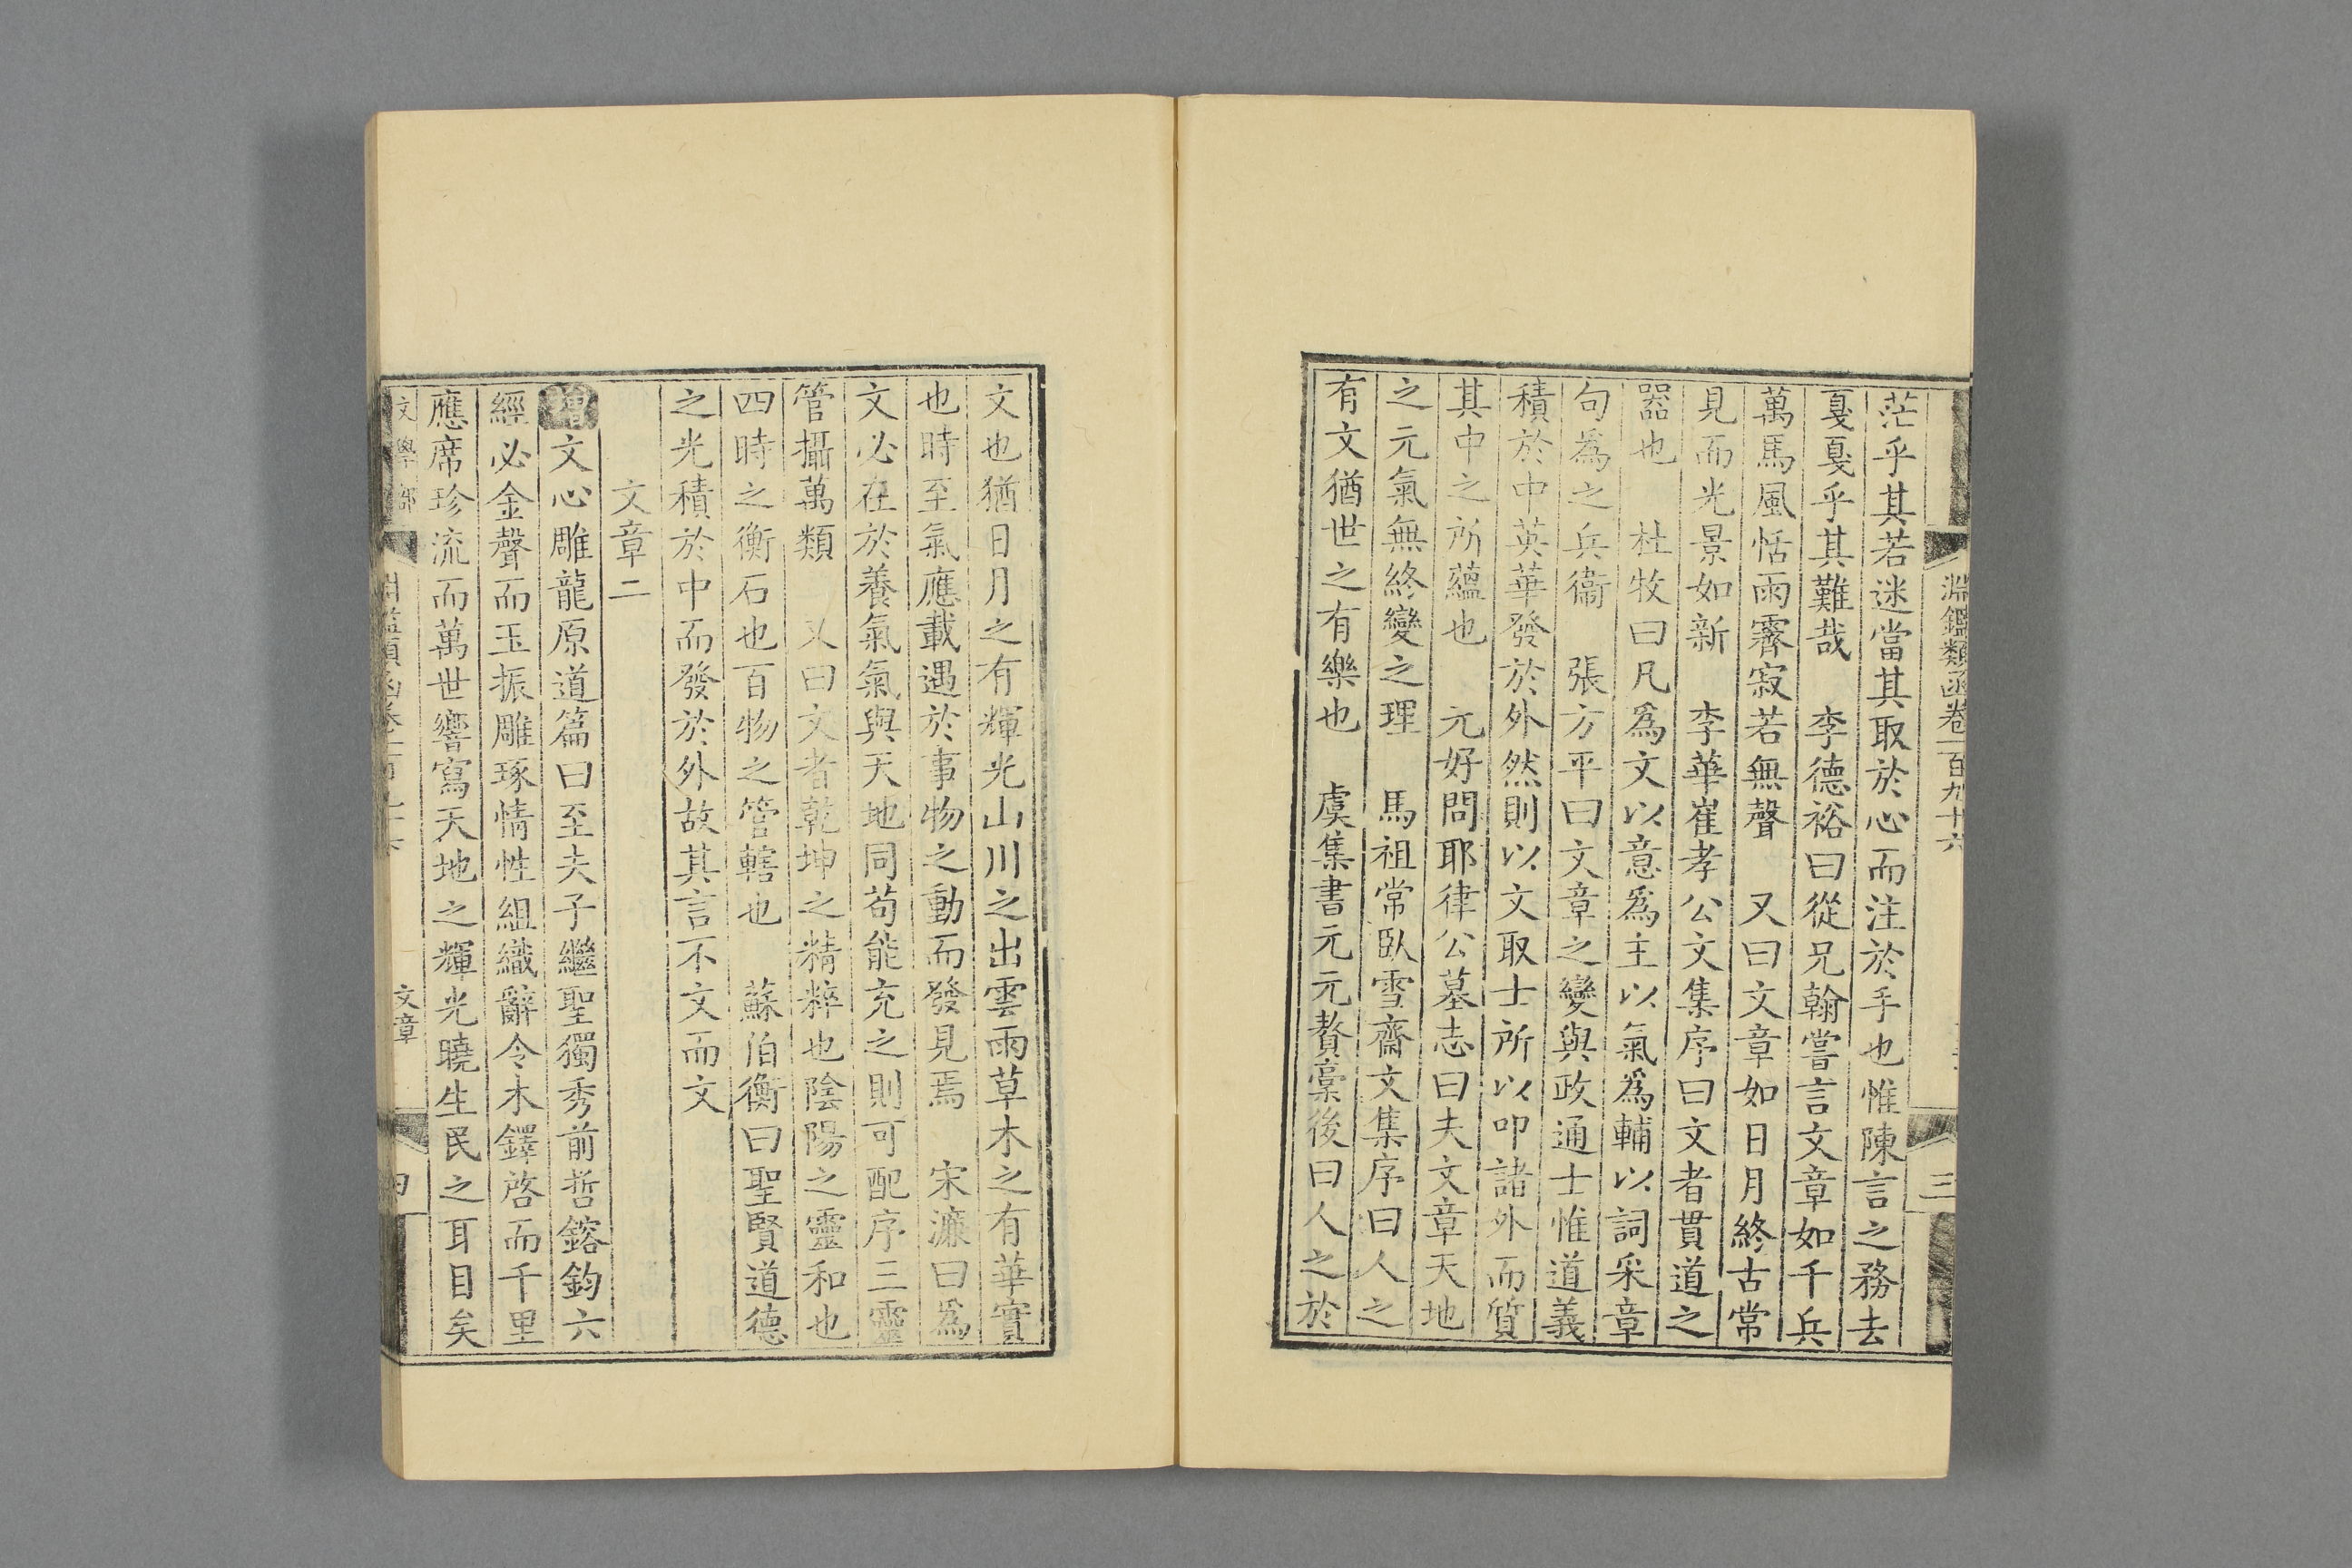 淵鑑類函卷一百九十六
三
茫乎其若迷當其取於心而注於手也惟陳言之務去
戛戛乎其難哉 李德裕曰從兄翰嘗言文章如千兵
萬馬風恬雨霽寂若無聲 又曰文章如日月終古常
見而光景如新 李華崔孝公文集序曰文者貫道之
器也 杜牧曰凡爲文以意爲主以氣爲輔以詞采章
句爲之兵衞 張方平曰文章之變與政通士惟道義
積於中英華發於外然則以文取士所以叩諸外而質
其中之所蘊也 元好問耶律公墓志曰夫文章天地
之元氣無終變之理 馬祖常臥雪齋文集序曰人之
有文猶世之有樂也 虞集書元元贅稾後曰人之於
文也猶日月之有輝光山川之出雲雨草木之有華實
也時至氣應載遇於事物之動而發見焉 宋濂曰爲
文必在於養氣氣與天地同苟能充之則可配序三靈
管攝萬類 又曰文者乾坤之精粹也陰陽之靈和也
四時之衡石也百物之管轄也 蘇伯衡曰聖賢道德
之光積於中而發於外故其言不文而文
文章二
增文心雕龍原道篇曰至夫子繼聖獨秀前哲鎔鈞六
經必金聲而玉振雕琢情性組織辭令木鐸啓而千里
應席珍流而萬世響寫天地之輝光曉生民之耳目矣
文學部 文章